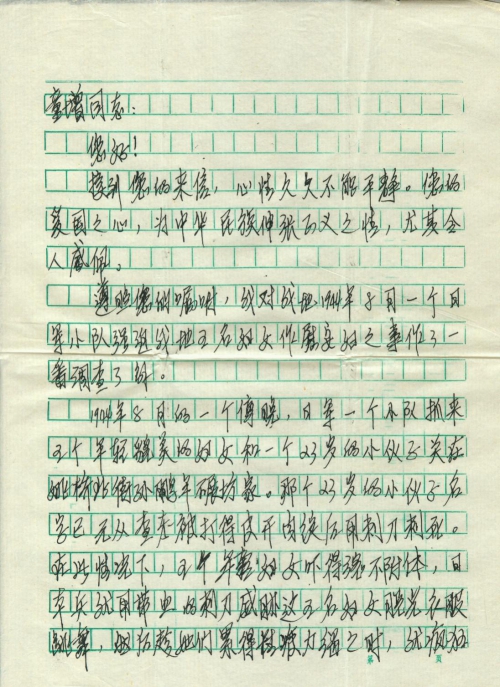 童增同志：
您好！
接到您的来信，心情久久不能平静。您的
爱国之心，为中华民族伸张正义之情，尤其令
人感佩。
遵照您的嘱咐，我对我地1944年8月一个日
军小队强迫我地五名妇女作慰安妇之事作了一
番调查了解。
1944年8月的一个傍晚，日军一个小队抓来
五个年轻貌美的妇女和一个23岁的小伙子关在
街外坊家。那个23岁的小伙子名
字已无从查考被打得皮开肉绽后用刺刀刺死。
在此情况下，五个年轻妇女吓得魂不附体，日
军兵就用带血的刺刀威胁这五名妇女脱光衣服
跳舞，最后趁她们累得精疲力竭之时，就疯狂
第 页